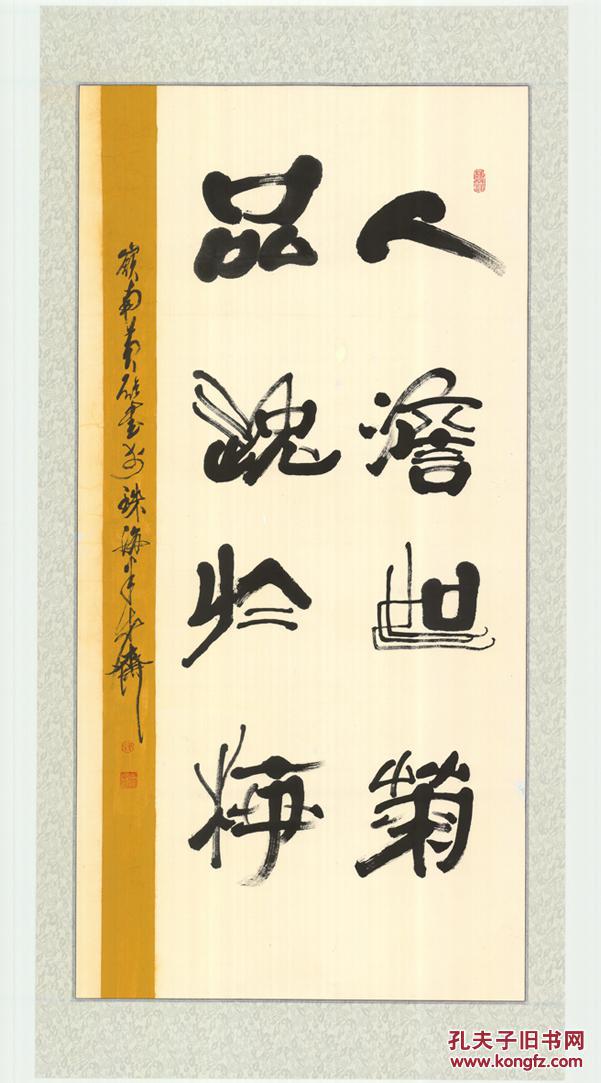 人澹如菊
品於梅
嶺南黄書於珠海半步齋
孔夫子旧书网
www.kongfz.com